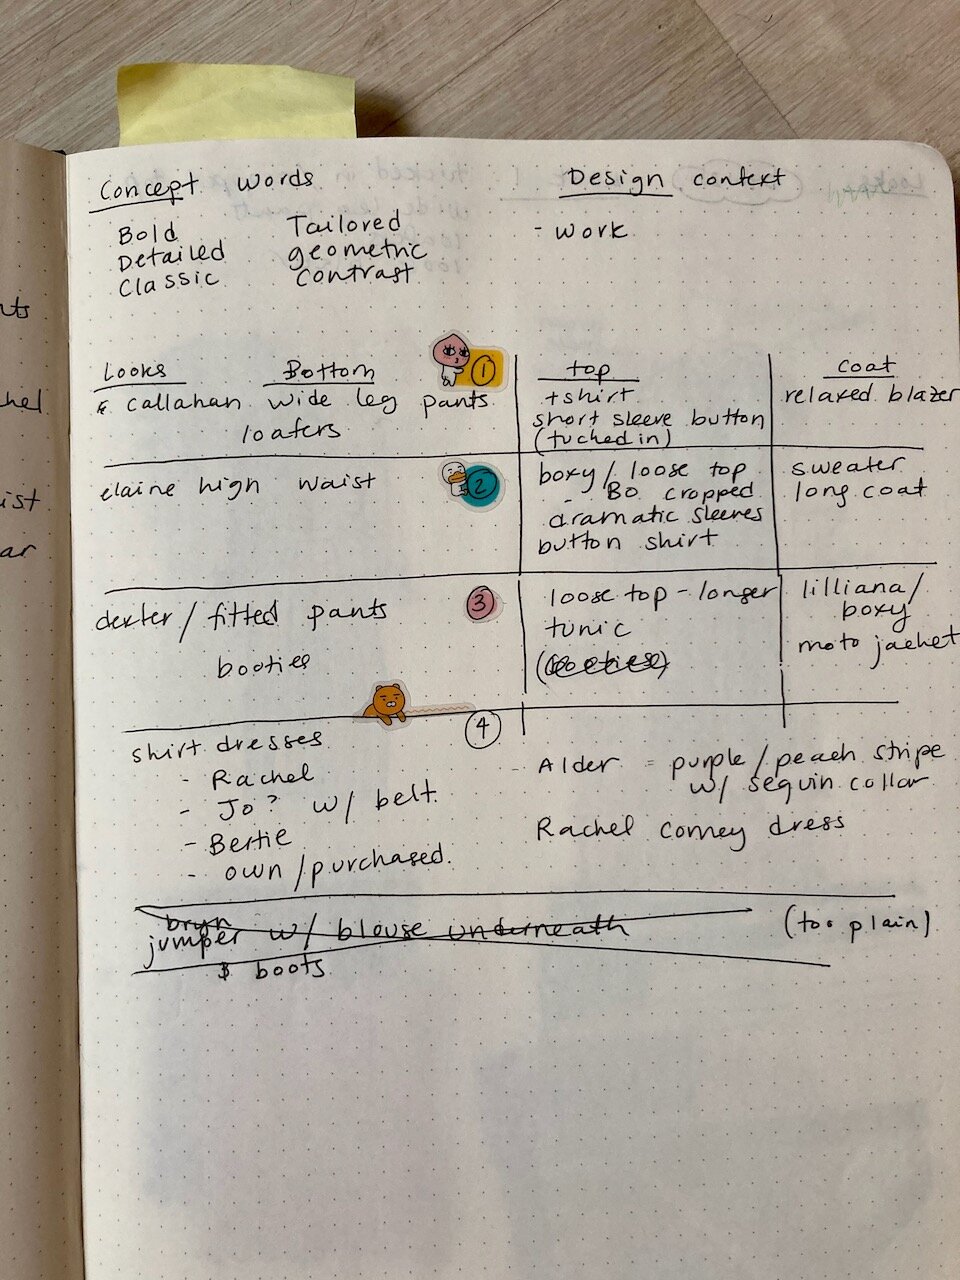 Concept words
Design context
Bold
Detailed
Classic
Tailored
geometric
contrast
- work
Looks
Bottom
1
top
coat
callahan wide leg pants
loafers
tshirt
short sleeve button
(tucked in)
relaxed blazer
elaine high waist
2
boxy / loose top
- BO cropped
dramatic sleeves
button shirt
sweater
long coat
dexter / fitted pants
booties
3
loose top - longer
tunic
(booties)
lilliana /
boxy
moto jacket
4
shirt dresses
- Rachel
- Jo? w/ belt
- Bertie
- own / purchased.
- Alder = purple / peach stripe
w/ sequin collar
Rachel Comey dress
bryn
jumper w/ blouse underneath
& boots
(too plain)
nts
hel
ist
ar